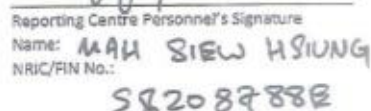 Reporting Centre Personnel's Signature
Name: MAH SIEW HSIUNG
NRIC/FIN No.:
S8208788E